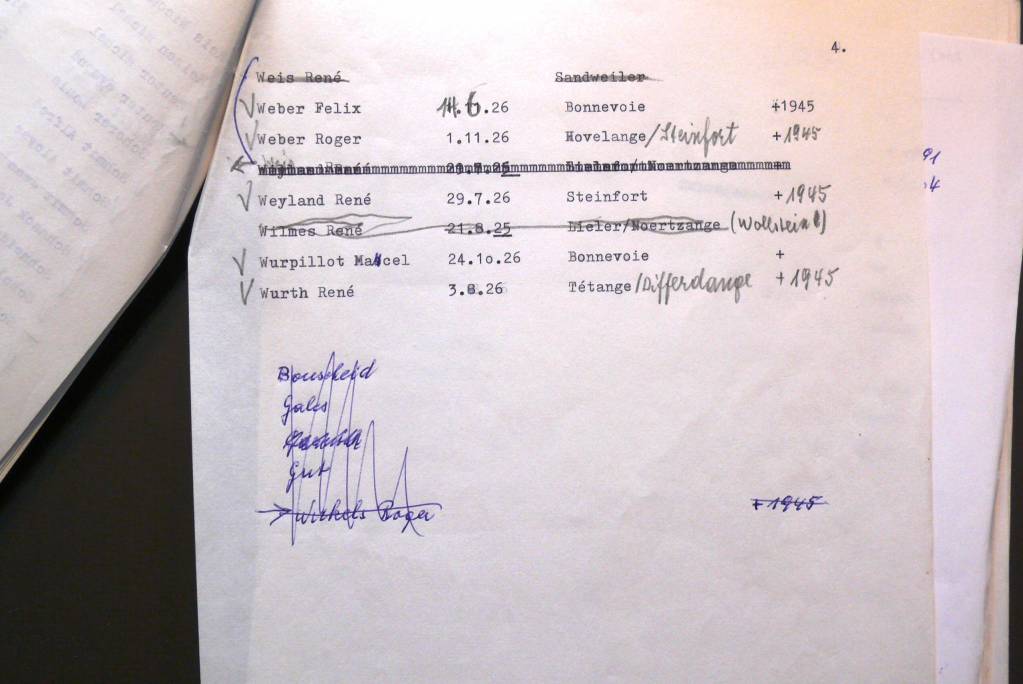 4.
Weis René Sandweiler
Weber Felix 14.6.26 Bonnevoie +1945
Weber Roger 1.11.26 Hovelange/Steinfort +1945
Weyland René 29.7.26 Steinfort +1945
Wilmes René 21.8.25 Lieler/Noertzange (Wollstein)
Wurpillot Marcel 24.10.26 Bonnevoie +
Wurth René 3.8.26 Tétange/Differdange +1945
Bouscheid
Gales
Gut
Winkels Roger +1945